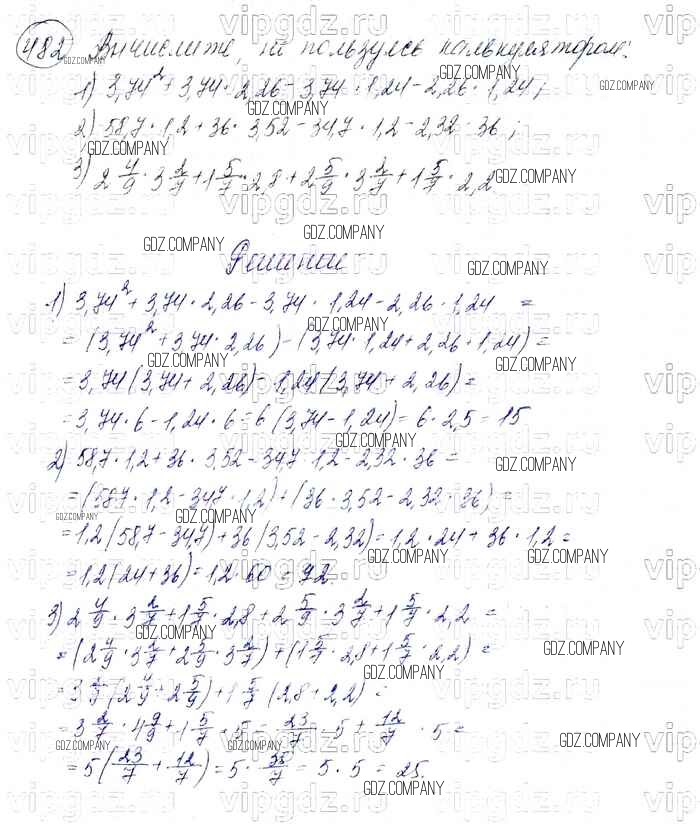 482 Вычислите, не пользуясь калькулятором:
1) 3,74² + 3,74 · 2,26 - 3,74 · 1,24 - 2,26 · 1,24;
2) 58,7 · 1,2 + 36 · 3,52 - 34,7 · 1,2 - 2,32 · 36;
3) 2 4/9 · 3 2/7 + 1 5/7 · 2,8 + 2 5/9 · 3 2/7 + 1 5/7 · 2,2
Решение
1) 3,74² + 3,74 · 2,26 - 3,74 · 1,24 - 2,26 · 1,24 =
= (3,74² + 3,74 · 2,26) - (3,74 · 1,24 + 2,26 · 1,24) =
= 3,74 (3,74 + 2,26) - 1,24 (3,74 + 2,26) =
= 3,74 · 6 - 1,24 · 6 = 6 (3,74 - 1,24) = 6 · 2,5 = 15
2) 58,7 · 1,2 + 36 · 3,52 - 34,7 · 1,2 - 2,32 · 36 =
= (58,7 · 1,2 - 34,7 · 1,2) + (36 · 3,52 - 2,32 · 36) =
= 1,2 (58,7 - 34,7) + 36 (3,52 - 2,32) = 1,2 · 24 + 36 · 1,2 =
= 1,2 (24 + 36) = 1,2 · 60 = 72.
3) 2 4/9 · 3 2/7 + 1 5/7 · 2,8 + 2 5/9 · 3 2/7 + 1 5/7 · 2,2 =
= (2 4/9 · 3 2/7 + 2 5/9 · 3 2/7) + (1 5/7 · 2,8 + 1 5/7 · 2,2) =
= 3 2/7 (2 4/9 + 2 5/9) + 1 5/7 (2,8 + 2,2) =
= 3 2/7 · 4 9/9 + 1 5/7 · 5 = 23/7 · 5 + 12/7 · 5 =
= 5 (23/7 + 12/7) = 5 · 35/7 = 5 · 5 = 25.